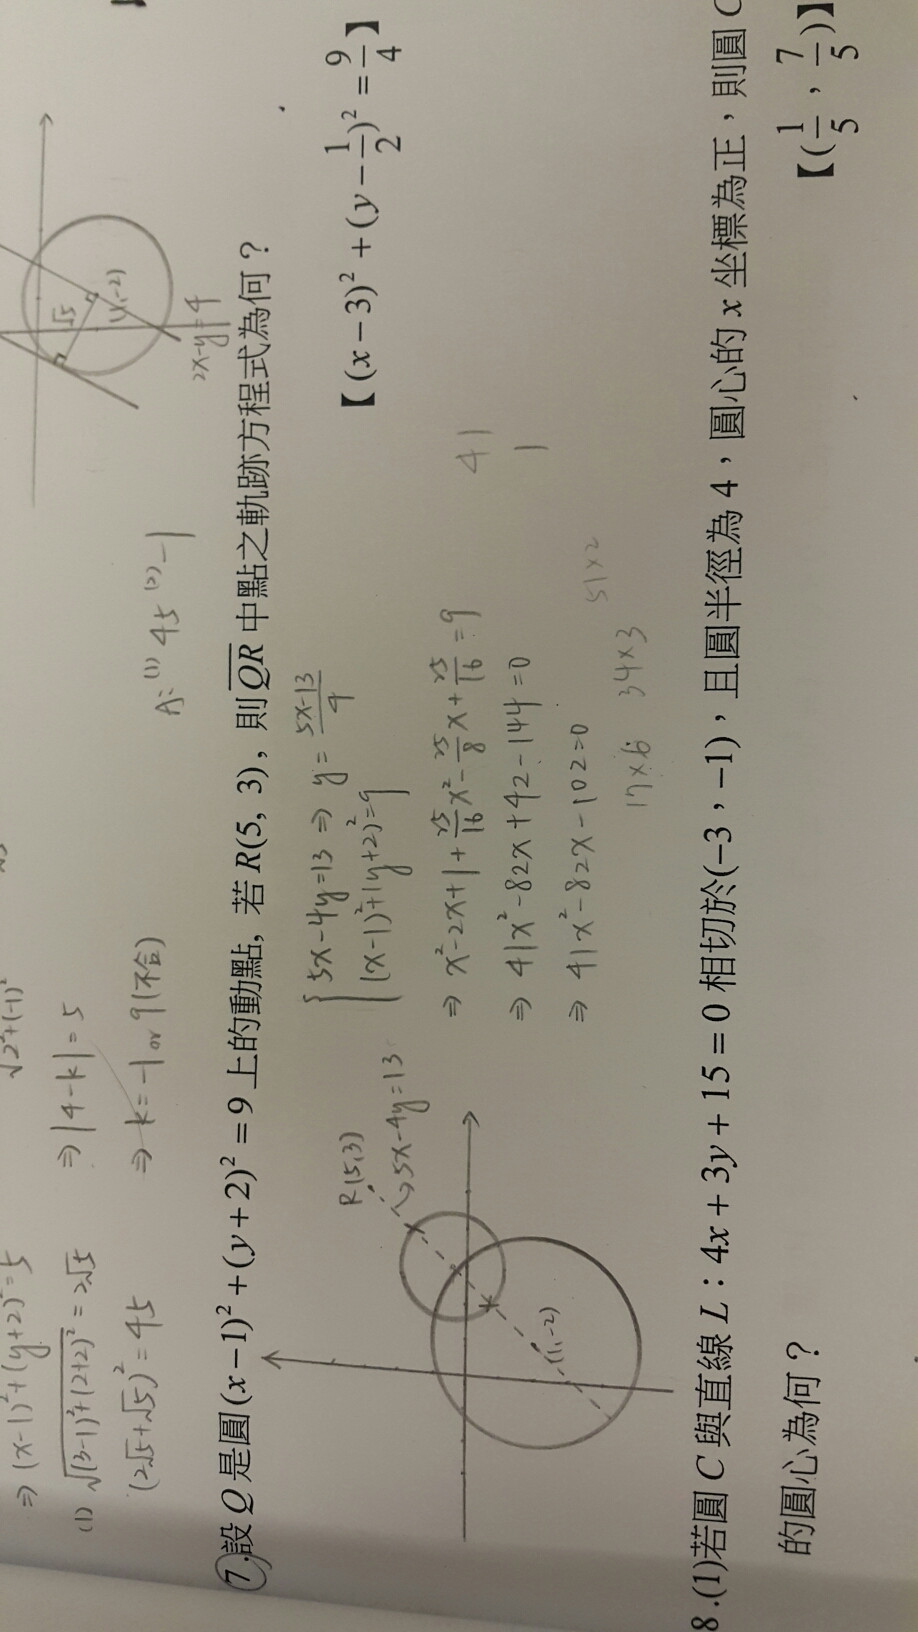 ⇒ (x-1)²+(y+2)²=5
√2²+(-1)²
(1) √(3-1)²+(2+2)² = 2√5
⇒ |4-k| = 5
(2√5+√5)² = 45
⇒ k = -1 or 9(不合)
A: (1) 45 (2) -1
√5
(1,-2)
2x-y=4
7.設 Q 是圓 (x-1)²+(y+2)²=9 上的動點, 若 R(5, 3), 則 QR 中點之軌跡方程式為何?
【(x-3)²+(y-1/2)²=9/4】
R(5,3)
5x-4y=13
(1,-2)
5x-4y=13 ⇒ y = (5x-13)/4
(x-1)²+(y+2)²=9
⇒ x²-2x+1+25/16x²-25/8x+25/16=9
⇒ 41x²-82x+42-144=0
⇒ 41x²-82x-102=0
17×6 34×3 51×2
41
1
8.(1)若圓 C 與直線 L:4x+3y+15=0 相切於(-3,-1),且圓半徑為 4,圓心的 x 坐標為正,則圓 C
的圓心為何?
【(1/5,7/5)】